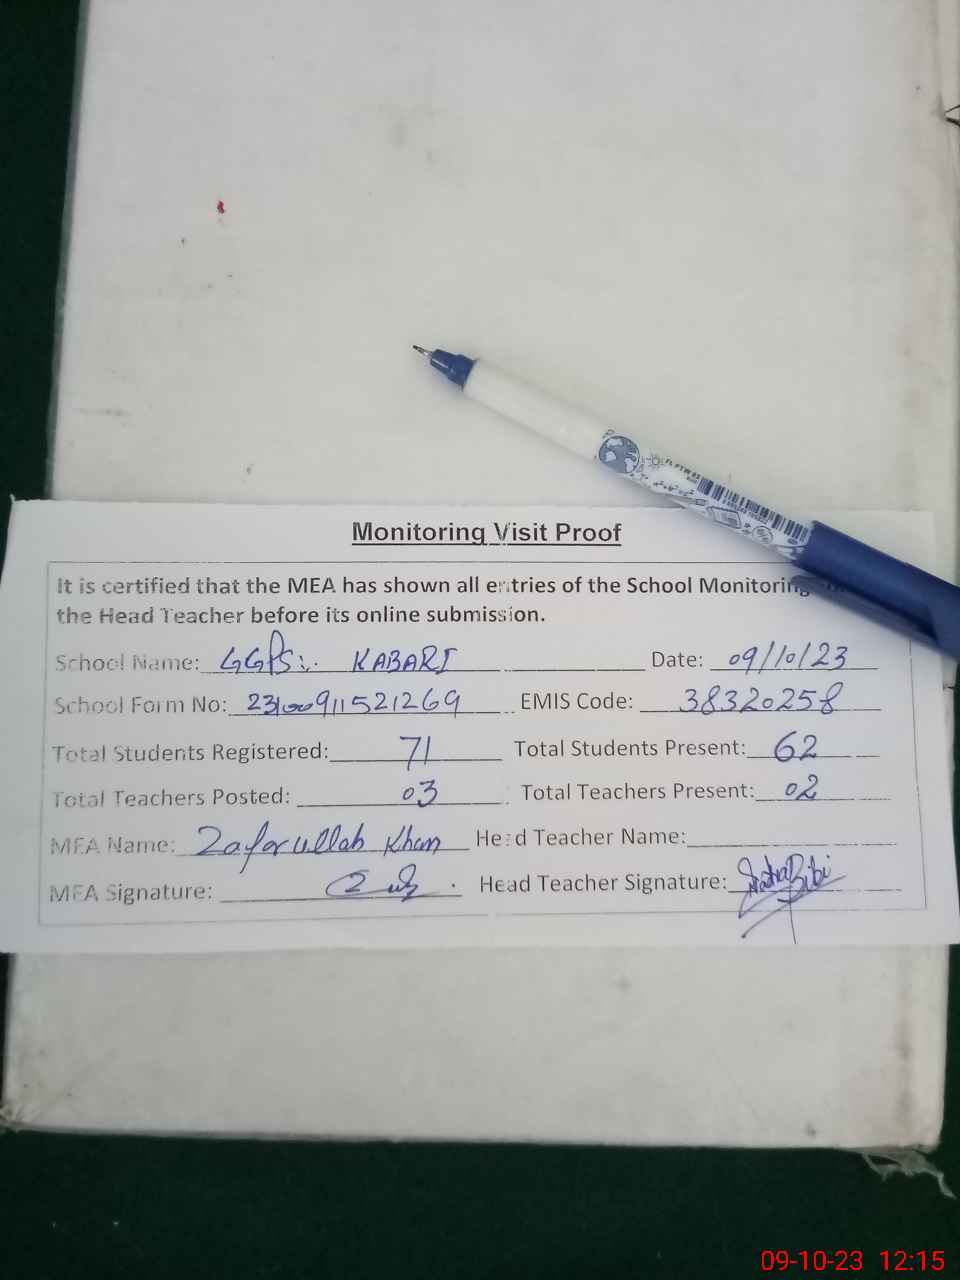 Monitoring Visit Proof
It is certified that the MEA has shown all entries of the School Monitoring
the Head Teacher before its online submission.
School Name: GGPS:. KABARI Date: 09/10/23
School Form No: 2310091152126 9 EMIS Code: 38320258
Total Students Registered: 71 Total Students Present: 62
Total Teachers Posted: 03 Total Teachers Present: 02
MEA Name: Zafarullah Khan Head Teacher Name:
MEA Signature: Head Teacher Signature: Bibi
09-10-23 12:15